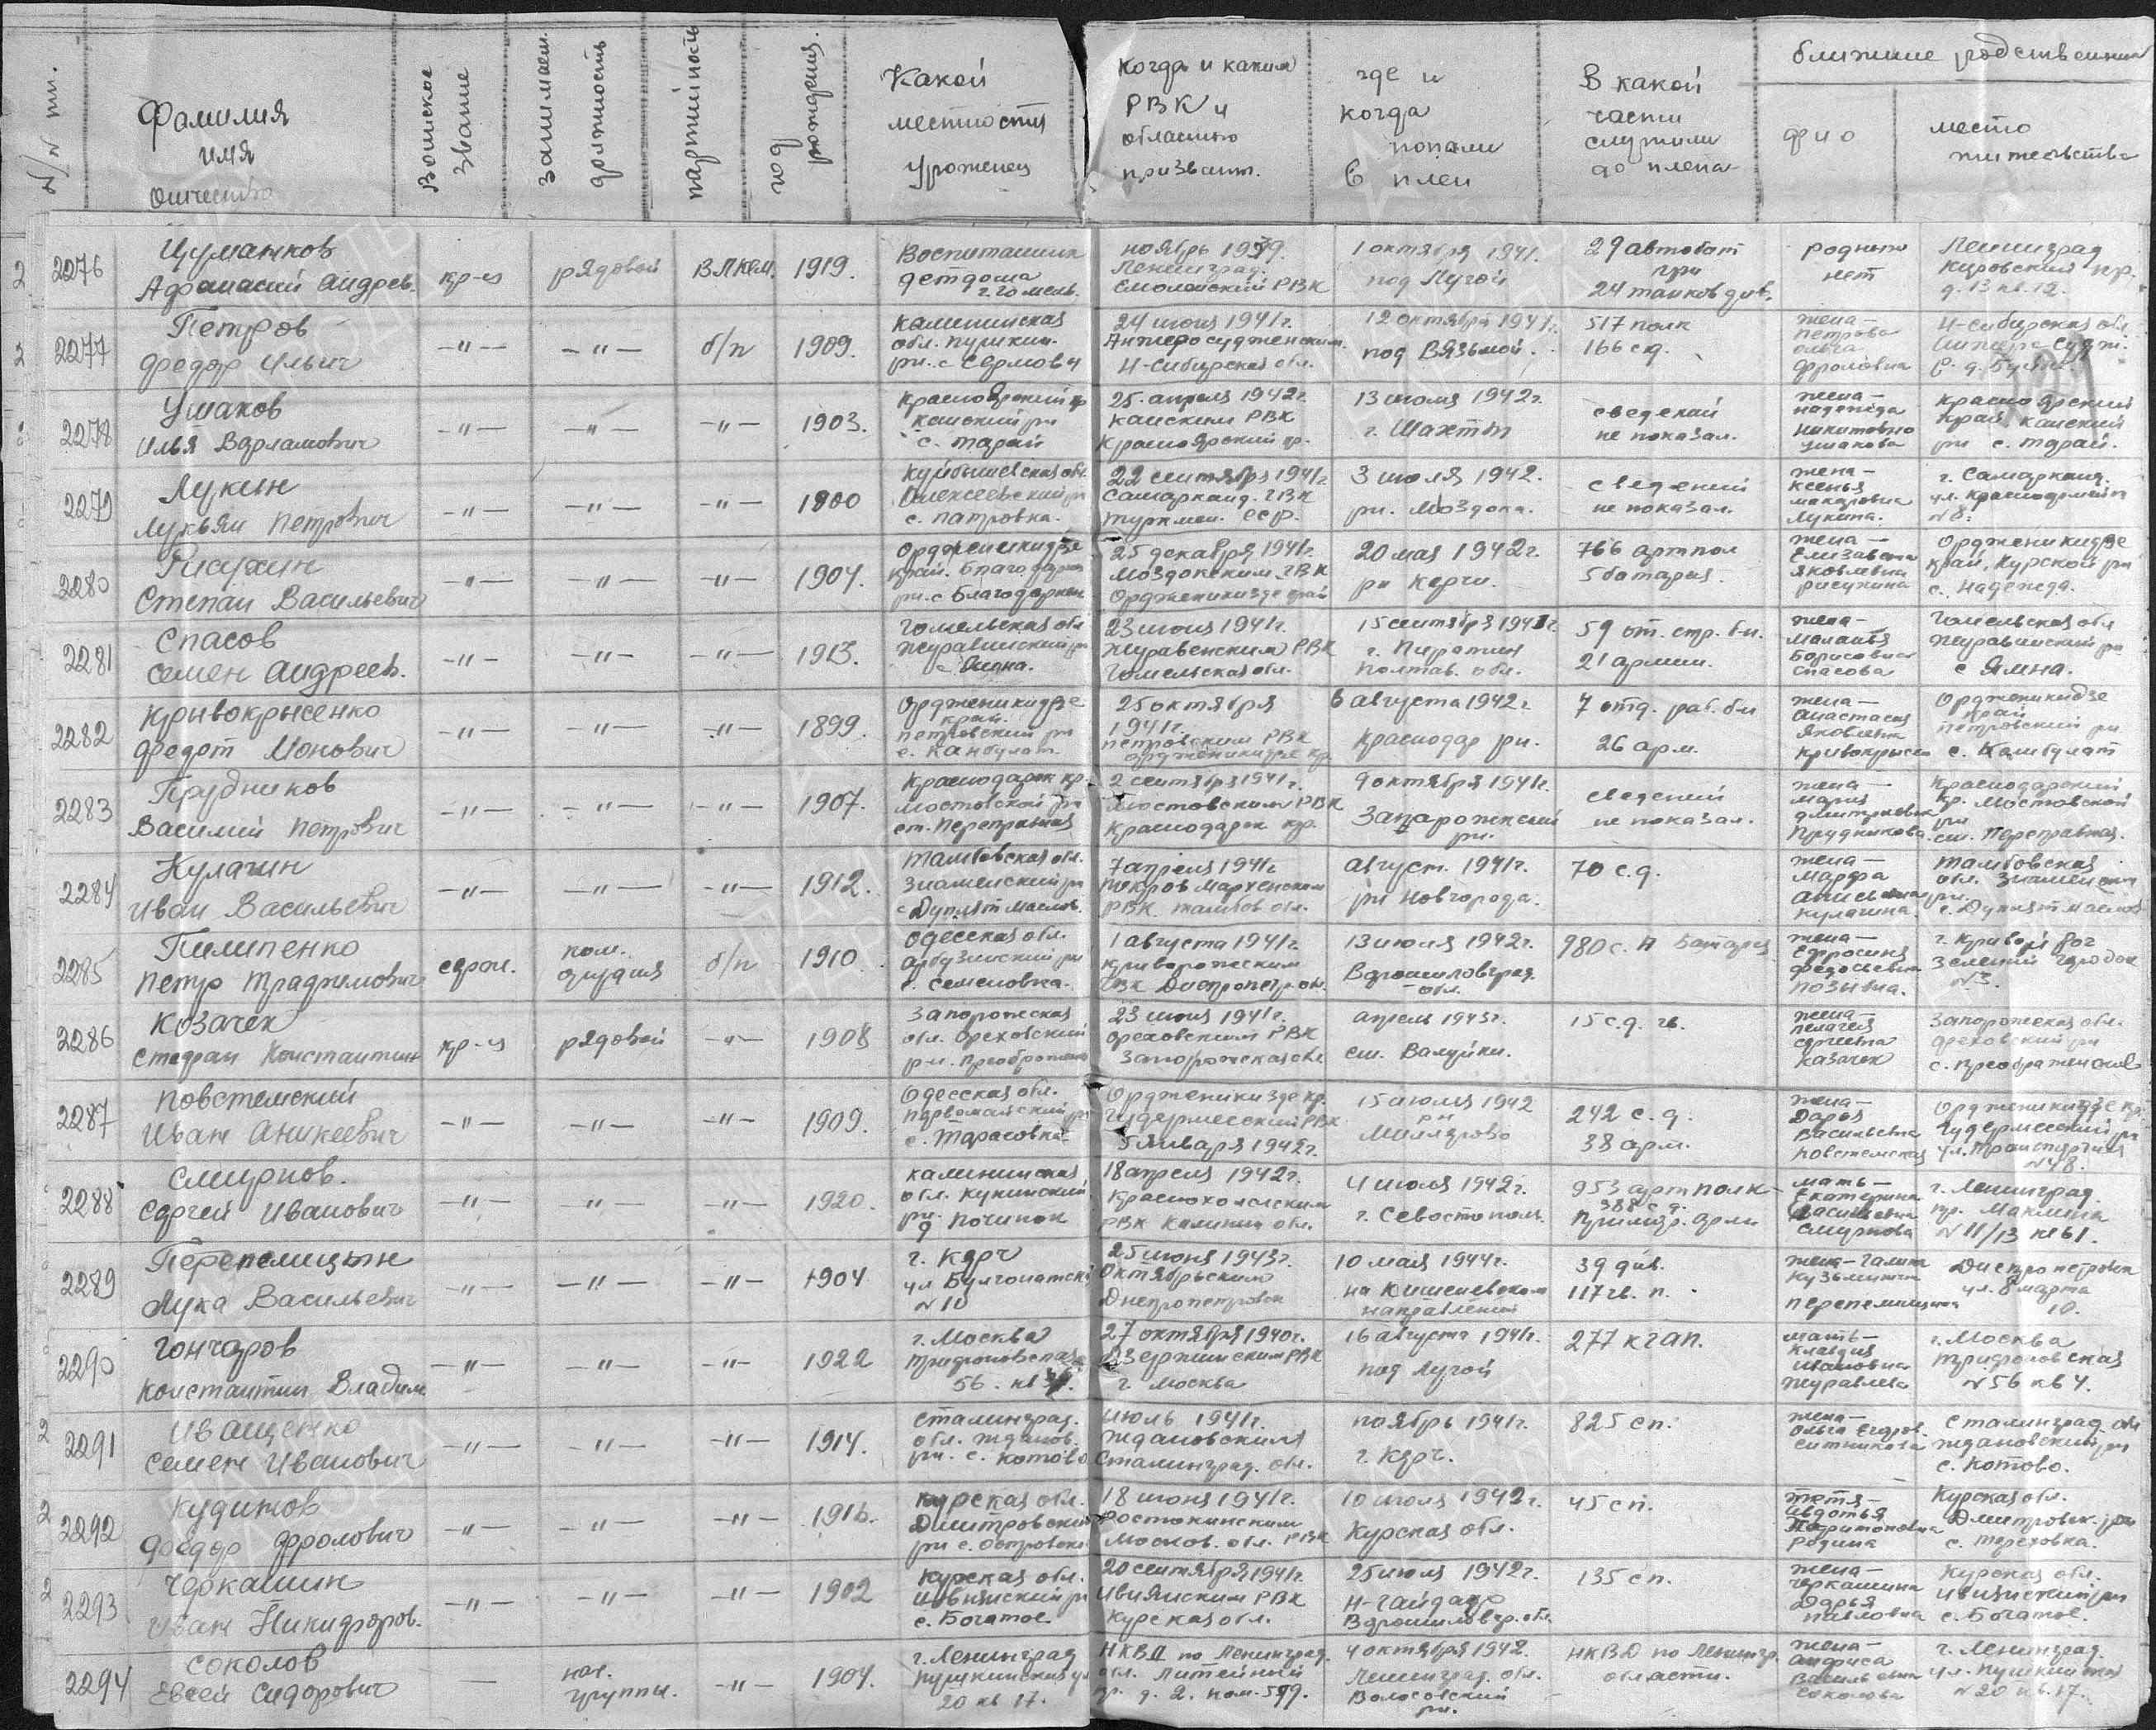 N/N пп.
Фамилия
имя
отчество
Воинское
звание
занимаем.
должность
партийность
год
рождения.
Какой
местности
уроженец
когда и каким
РВК и
областью
призван.
где и
когда
попали
в плен
В какой
части
служили
до плена
ближние родственники
фио
место
жительства
2276
Цуманков
Афанасий Андреев.
кр-ц
рядовой
ВЛКСМ.
1919.
Воспитанник
детдома
г. Гомель.
ноябрь 1939.
Ленинград.
Смолнский РВК
1 октября 1941.
под Лугой
29 автобат
при
24 танков див.
родных
нет
Ленинград
Кировский пр.
д. 13 кв. 12.
2277
Петров
Федор Ильич
-"-
-"-
б/п
1909.
Калининская
обл. Пушкин.
рн. с
24 июня 1941г.
Анжеросудженским
Н-Сибирская обл.
12 октября 1941г.
под Вязьмой.
517 полк
166 сд.
жена -
Петрова
Ольга
Фроловна
Н-Сибирская обл.
Анжеро-Судж.
2278
Ушаков
Илья Варламович
-"-
-"-
-"-
1903.
Красноярский кр
Канский рн
с. Тарай
25. апреля 1942г.
Канским РВК
Красноярский кр.
13 июля 1942г.
г. Шахты
сведений
не показал.
жена -
надежда
Никитовна
Ушакова
Красноярский
край Канский
рн с. Тарай.
2279
Лукин
Лукьян Петрович
-"-
-"-
-"-
1900
Куйбышевская обл.
Алексеевский рн
с. Патровка.
22 сентября 1941г.
Самарканд. ГВК
Туркмен. ССР.
3 июля 1942.
рн. Моздока.
сведений
не показал.
жена -
Ксенья
Макаровна
Лукина.
г. Самарканд.
ул. Красноармейск
N 8.
2280
Рисухин
Степан Васильевич
-"-
-"-
-"-
1904.
Орджениκидзе
край. Благодарн
рн. с Благодарное
25 декабря 1941г.
Моздокским ГВК
Орджениκидзе край
20 мая 1942г.
рн Керчи.
766 артпол
5 батарея.
жена -
Елизавета
Яковлевна
Рисухина
Орджениκидзе
край, Курской рн
с. Надежда.
2281
Спасов
Семен Андреев.
-"-
-"-
-"-
1913.
Гомельская обл
Журавинский рн
с Ямна.
23 июня 1941г.
Журавенским РВК
Гомельская обл.
15 сентября 1941г.
г. Пирятин
Полтав. обл.
59 от. стр. б-н.
21 армии.
жена -
Маланья
Борисовна
Спасова
Гомельская обл
Журавинский рн
с Ямна.
2282
Кривокрысенко
Федот Монович
-"-
-"-
-"-
1899.
Орджениκидзе
край.
Петровский рн
с. Канбулат.
25 октября
1941г.
Петровским РВК
Орджениκидзе кр.
6 августа 1942г.
Краснодар рн.
7 отд. раб. б-н
26 арм.
жена -
Анастасия
Яковлевна
Кривокрысен
Орджениκидзе
край
Петровский рн
с. Камбулат
2283
Прудников
Василий Петрович
-"-
-"-
-"-
1907.
Краснодарск кр.
Мостовской рн
ст. Переправная
2 сентября 1941г.
Мостовским РВК
Краснодарск кр.
9 октября 1941г.
Запарожский
рн.
сведений
не показал.
жена -
Мария
Дмитриевна
Прудникова.
Краснодарский
кр. Мостовской
рн
ст. Переправная.
2284
Кулагин
Иван Васильевич
-"-
-"-
-"-
1912.
Тамбовская обл.
Знаменский рн
с Дуплят Маслов.
7 апреля 1941г.
Покров Марфенским
РВК. Тамбов обл.
август. 1941г.
рн Новгорода.
70 с.д.
жена -
Марфа
Кулагина
Тамбовская
обл. Знаменский
рн.
с. Дуплят Маслов
2285
Пилипенко
Петр Традимович
сержн.
ком.
орудия
б/п
1910
Одесская обл.
Арбузинский рн
с. Семеновка.
1 августа 1941г.
Криворожским
ГВК Днепропетр. обл.
13 июля 1942г.
Ворошиловград.
обл.
980 с. П Батарея
жена -
Ефросинья
Федосьевна
г. Кривой Рог
Зеленый городок
N 3.
2286
Козачек
Стефан Константин
кр-ц
рядовой
-"-
1908
Запорожская
обл. Ореховский
рн. Преображенка
23 июня 1941г.
Ореховским РВК
Запорожская обл.
апрель 1943г.
ст. Валуйки.
15 с.д. гв.
жена -
Пелагея
Сергеевна
Казачек
Запорожская обл.
Ореховский рн
с. Преображенское
2287
Повстемский
Иван Аникеевич
-"-
-"-
-"-
1909.
Одесская обл.
Первомайский рн
с. Тарасовка
Орджениκидзе кр.
Гудермесский РВК
5 января 1942г.
15 июля 1942
рн
Миллерово
242 с.д.
38 арм.
жена -
Дарья
Васильевна
Повстемская
Орджениκидзе кр.
Гудермесский рн
N 48.
2288
Смирнов.
Сергей Иванович
-"-
-"-
-"-
1920.
Калининская
обл. Кункинский
рн.
д Починок
18 апреля 1942г.
Краснохолмским
РВК Калинин обл.
4 июля 1942г.
г. Севостополь.
953 артполк
388 с д.
Примор. арм
мать -
Екатерина
Васильевна
Смирнова
г. Ленинград.
пр. Маклина
N 11/13 кв 61.
2289
Перепелицын
Лука Васильевич
-"-
-"-
-"-
1904
г. Керч
ул Булгонатский
N 10
25 июня 1943г.
Октябрьским
Днепропетровск
10 мая 1944г.
на Кишеневском
направлении
39 див.
117 гв. п.
жена - Галина
Кузьминич
Перепелицина
Днепропетровск
ул. 8 марта
10.
2290
Гончаров
Константин Владим.
-"-
-"-
-"-
1922
г. Москва
Трифоновская
56. кв
27 октября 1940г.
Дзержинским РВК
г. Москва
16 августа 1941г.
под Лугой
277 кгап.
мать -
Клавдия
Ивановна
Журавлева
г. Москва
Трифоловская
N 56 кв 4.
2291
Иващенко
Семен Иванович
-"-
-"-
-"-
1914.
Сталинград.
обл. Жданов.
рн. с. Котово
Июль 1941г.
Ждановским
Сталинград. обл.
ноябрь 1941г.
г. Керч.
825 сп.
жена -
Ольга Егоров.
Ситникова
Сталинград. обл
Ждановский рн
с. Котово.
2292
Кудинов
Федор Фролович
-"-
-"-
-"-
1916.
Курская обл.
Дмитровский
рн с. Островско
18 июня 1941г.
Ростокинским
Москов. обл. РВК
10 июля 1942г.
Курская обл.
45 сп.
тетя -
Авдотья
Родина
Курская обл.
Дмитровск. рн
с. Тереховка.
2293
Черкашин
Иван Никифоров.
-"-
-"-
-"-
1902
Курская обл.
Ивнянский рн
с. Богатое
20 сентября 1941г.
Ивнянским РВК
Курская обл.
25 июля 1942г.
Н-Гайдадр
Ворошиловгр. обл.
135 сп.
жена -
Черкашина
Дарья
Павловна
Курская обл.
Ивнянский рн
с. Богатое.
2294
Соколов
Евсей Сидорович
—
нач.
группы.
-"-
1904.
г. Ленинград
Пушкинская ул
20 кв 17.
НКВД по Ленинград.
обл. Литейный
пр. д. 2. ком. 599.
4 октября 1942.
Ленинград. обл.
Волосовский
рн.
НКВД по Ленингр.
области.
жена -
Анфиса
Васильевна
Соколова
г. Ленинград.
ул. Пушкинская
N 20 кв. 17.